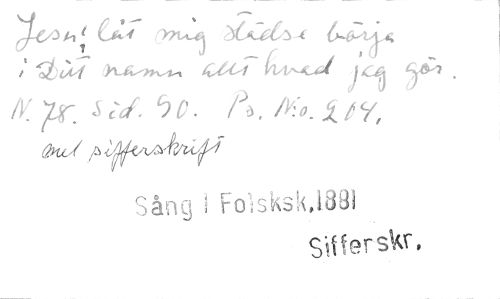 Jesu! låt mig städse börja
i Ditt namn allt hvad jag gör.
N. 78. Sid. 90. Ps. N:o. 204.
mel sifferskrift
Sång i Folsksk,1881
Sifferskr.